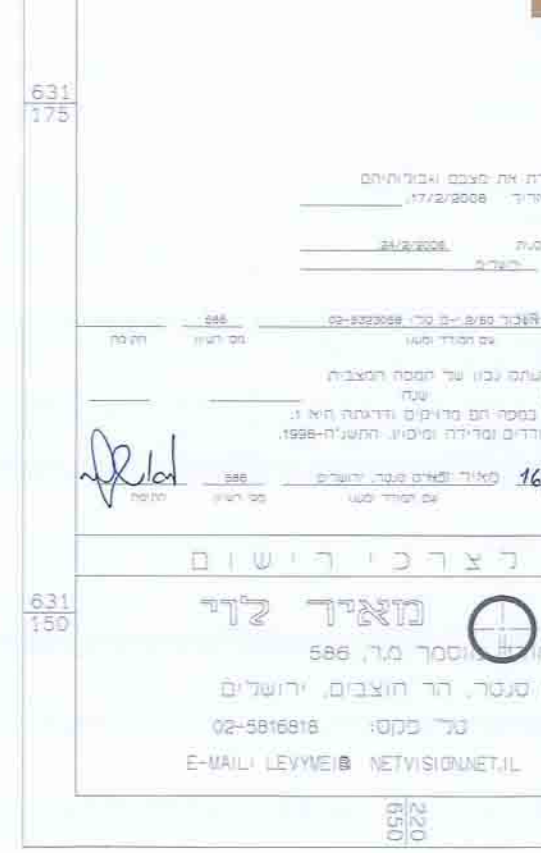 631
175
את מצבם וגבולותיהם
17/2/2008.
24/2/2008
ירושלים
02-5323068
586
שם המודד ומענו
מס' רשיון
חתימה
נכון של המפה המצבית
שנת
במפה הם מדויקים ודרגתה היא 1.
ומדידה ומיפוי, התשנ"ח-1998.
16
מאיר סנטר, ירושלים
586
שם המודד ומענו
מס' רשיון
חתימה
לצרכי רישום
631
150
מאיר לוי
מוסמך מ.ר. 586
סנטר, הר חוצבים, ירושלים
טל' פקס: 02-5816818
E-MAIL: LEVYMEI@ NETVISION.NET.IL
220
650